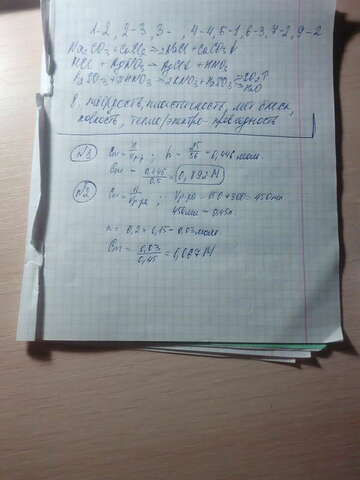 1-2, 2-3, 3- , 4-4, 5-1, 6-3, 7-2, 9-2
Na₂CO₃ + CaCl₂ = 2NaCl + CaCO₃↓
HCl + AgNO₃ → AgCl↓ + HNO₃
SO₂↑
H₂O
8, твёрдость, пластичность, мет блеск,
ковкость, тепло/электро-проводность
№1 Cm = n/Vр-р ; n = = 0,446 моль
Cm = 0,446/0,5 = 0,892 М
№2 Cm = n/Vр-ра ; Vр-ра = 150 + 300 = 450 мл
450 мл = 0,45 л
n = 0,2 * 0,15 = 0,03 моль
Cm = 0,03/0,45 = 0,067 М